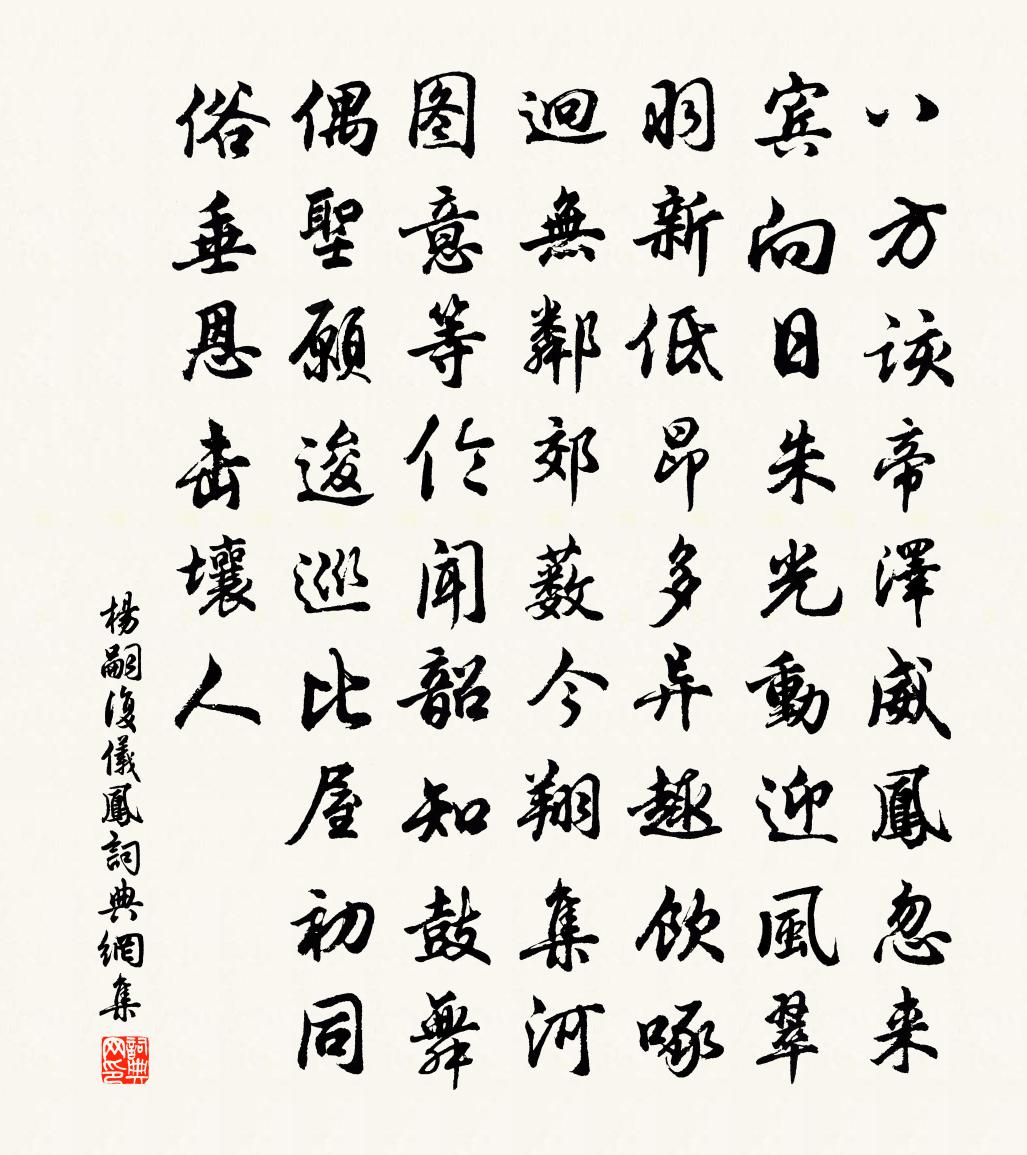 八方该帝澤威鳳忽来
宾向日朱光動迎風翠
羽新低昂多异趣飲啄
迥無鄰郊薮今翔集河
图意等伦闻韶知鼓舞
偶聖願逡巡比屋初同
俗垂恩击壤人
楊嗣復儀鳳詞典網集
詞典网印